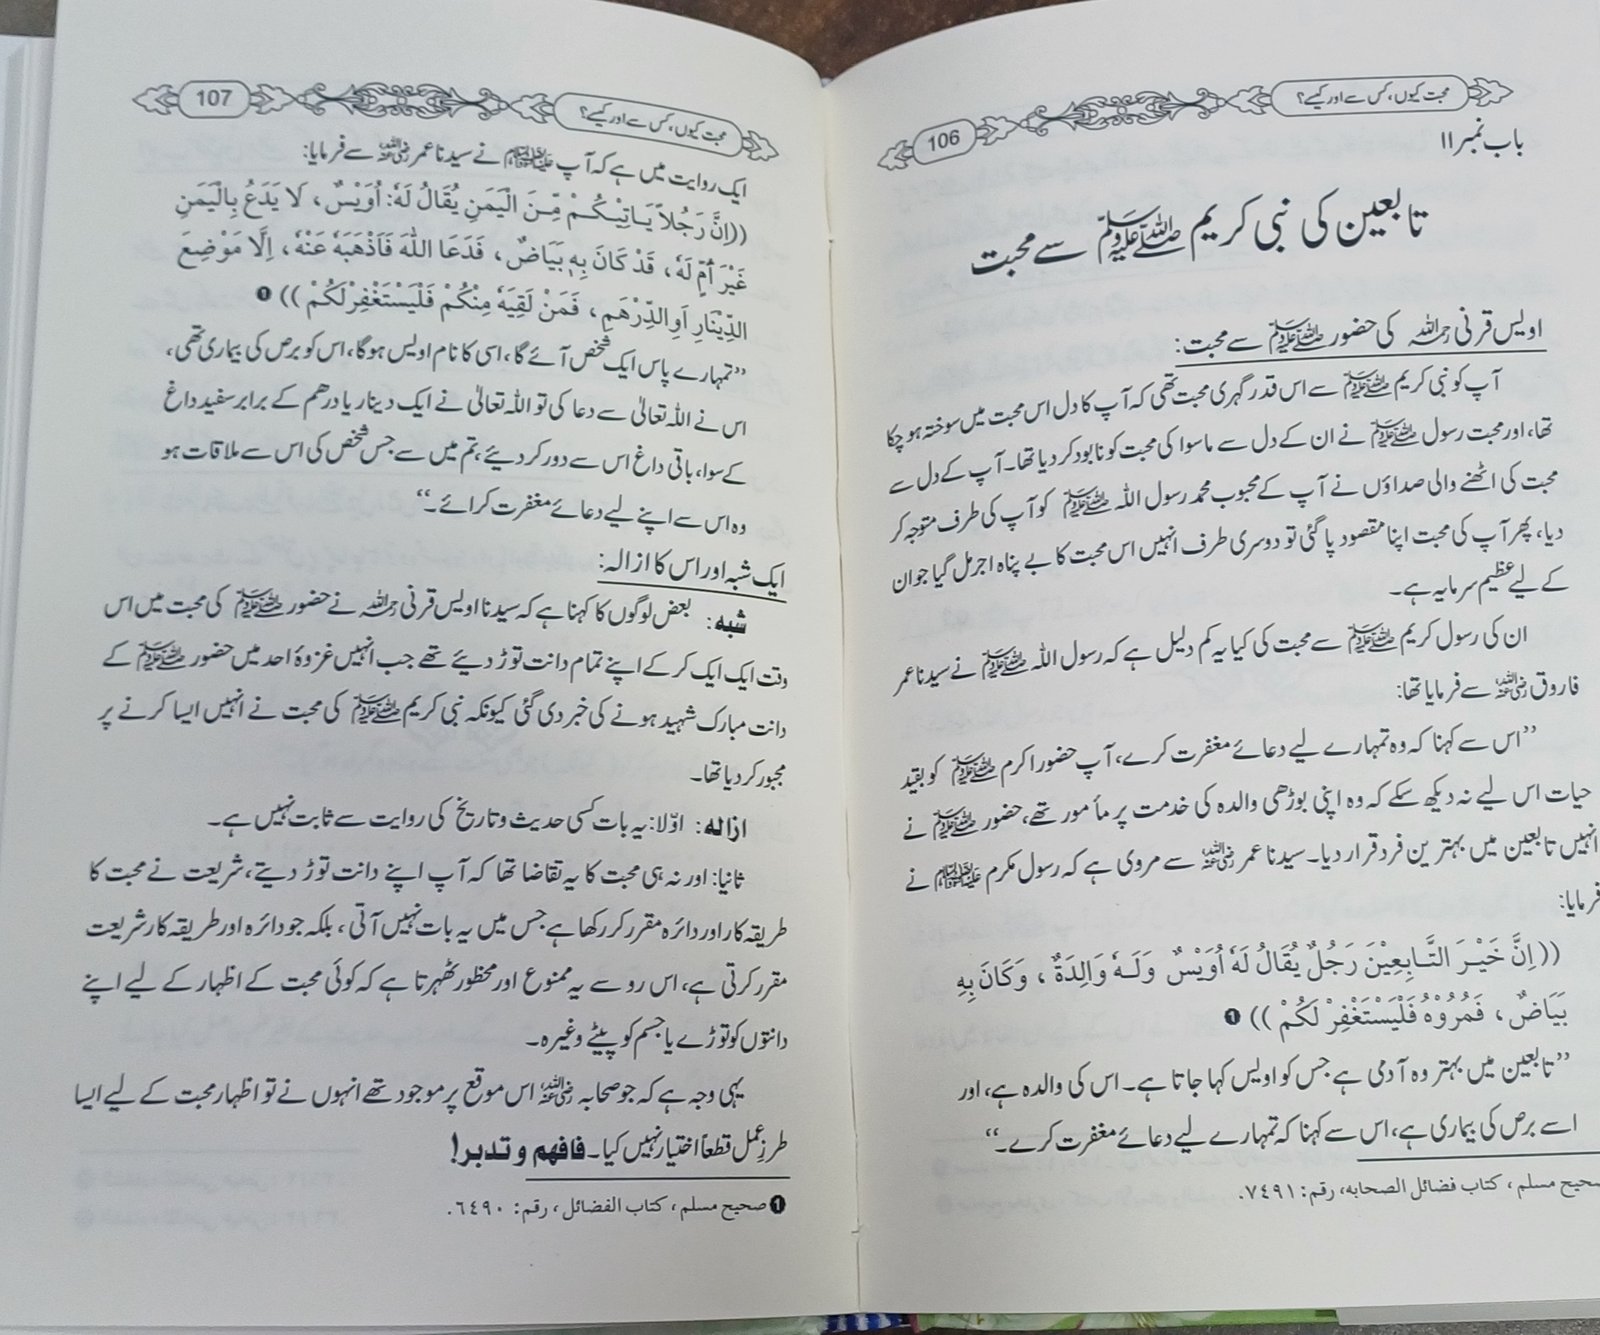 محبت کیوں، کس سے اور کیسے؟
106
باب نمبر ۱۱
تابعین کی نبی کریم ﷺ سے محبت
اویس قرنی رحمہ اللہ کی حضور ﷺ سے محبت:
آپ کو نبی کریم ﷺ سے اس قدر گہری محبت تھی کہ آپ کا دل اس محبت میں سوختہ ہو چکا
تھا، اور محبت رسول ﷺ نے ان کے دل سے ماسوا کی محبت کو نابود کر دیا تھا۔ آپ کے دل سے
محبت کی اٹھنے والی صداؤں نے آپ کے محبوب محمد رسول اللہ ﷺ کو آپ کی طرف متوجہ کر
دیا، پھر آپ کی محبت اپنا مقصود پا گئی تو دوسری طرف انہیں اس محبت کا بے پناہ اجر مل گیا جو ان
کے لیے عظیم سرمایہ ہے۔
ان کی رسول کریم ﷺ سے محبت کی کیا یہ کم دلیل ہے کہ رسول اللہ ﷺ نے سیدنا عمر
فاروق رضی اللہ عنہ سے فرمایا تھا:
’’اس سے کہنا کہ وہ تمہارے لیے دعائے مغفرت کرے، آپ حضور اکرم ﷺ کو بقید
حیات اس لیے نہ دیکھ سکے کہ وہ اپنی بوڑھی والدہ کی خدمت پر مأمور تھے، حضور ﷺ نے
انہیں تابعین میں بہترین فرد قرار دیا۔ سیدنا عمر رضی اللہ عنہ سے مروی ہے کہ رسول مکرم ﷺ نے
فرمایا:
((اِنَّ خَيْرَ التَّابِعِيْنَ رَجُلٌ يُقَالُ لَهٗ اُوَيْسٌ وَلَهٗ وَالِدَةٌ ، وَكَانَ بِهِ
بَيَاضٌ ، فَمُرُوْهُ فَلْيَسْتَغْفِرْ لَكُمْ)) ❶
’’تابعین میں بہتر وہ آدمی ہے جس کو اویس کہا جاتا ہے۔ اس کی والدہ ہے، اور
اسے برص کی بیماری ہے، اس سے کہنا کہ تمہارے لیے دعائے مغفرت کرے۔‘‘
صحیح مسلم ، کتاب فضائل الصحابه، رقم: ٧٤٩١.
محبت کیوں، کس سے اور کیسے؟
107
ایک روایت میں ہے کہ آپ ﷺ نے سیدنا عمر رضی اللہ عنہ سے فرمایا:
((اِنَّ رَجُلاً يَاتِيْكُمْ مِّنَ الْيَمَنِ يُقَالُ لَهٗ: اُوَيْسٌ، لَا يَدَعُ بِالْيَمَنِ
غَيْرَ أُمٍّ لَهٗ ، قَدْ كَانَ بِهٖ بَيَاضٌ ، فَدَعَا اللّٰهَ فَاَذْهَبَهٗ عَنْهُ ، اِلَّا مَوْضِعَ
الدِّيْنَارِ اَوِ الدِّرْهَمِ ، فَمَنْ لَقِيَهٗ مِنْكُمْ فَلْيَسْتَغْفِرْ لَكُمْ)) ❶
’’تمہارے پاس ایک شخص آئے گا، اسی کا نام اویس ہوگا، اس کو برص کی بیماری تھی،
اس نے اللہ تعالیٰ سے دعا کی تو اللہ تعالیٰ نے ایک دینار یا درھم کے برابر سفید داغ
کے سوا، باقی داغ اس سے دور کر دیئے، تم میں سے جس شخص کی اس سے ملاقات ہو
وہ اس سے اپنے لیے دعائے مغفرت کرائے۔‘‘
ایک شبہ اور اس کا ازالہ:
شبہ: بعض لوگوں کا کہنا ہے کہ سیدنا اویس قرنی رحمہ اللہ نے حضور ﷺ کی محبت میں اس
وقت ایک ایک کر کے اپنے تمام دانت توڑ دیئے تھے جب انہیں غزوۂ احد میں حضور ﷺ کے
دانت مبارک شہید ہونے کی خبر دی گئی کیونکہ نبی کریم ﷺ کی محبت نے انہیں ایسا کرنے پر
مجبور کر دیا تھا۔
ازالہ: اوّلا: یہ بات کسی حدیث و تاریخ کی روایت سے ثابت نہیں ہے۔
ثانیا: اور نہ ہی محبت کا یہ تقاضا تھا کہ آپ اپنے دانت توڑ دیتے، شریعت نے محبت کا
طریقہ کار اور دائرہ مقرر کر رکھا ہے جس میں یہ بات نہیں آتی ، بلکہ جو دائرہ اور طریقہ کار شریعت
مقرر کرتی ہے، اس رو سے یہ ممنوع اور محظور ٹھہرتا ہے کہ کوئی محبت کے اظہار کے لیے اپنے
دانتوں کو توڑے یا جسم کو پیٹے وغیرہ۔
یہی وجہ ہے کہ جو صحابہ رضی اللہ عنہم اس موقع پر موجود تھے انہوں نے تو اظہار محبت کے لیے ایسا
طرزِ عمل قطعاً اختیار نہیں کیا۔ فافهم و تدبر!
❶ صحیح مسلم ، کتاب الفضائل ، رقم: ٦٤٩٠.